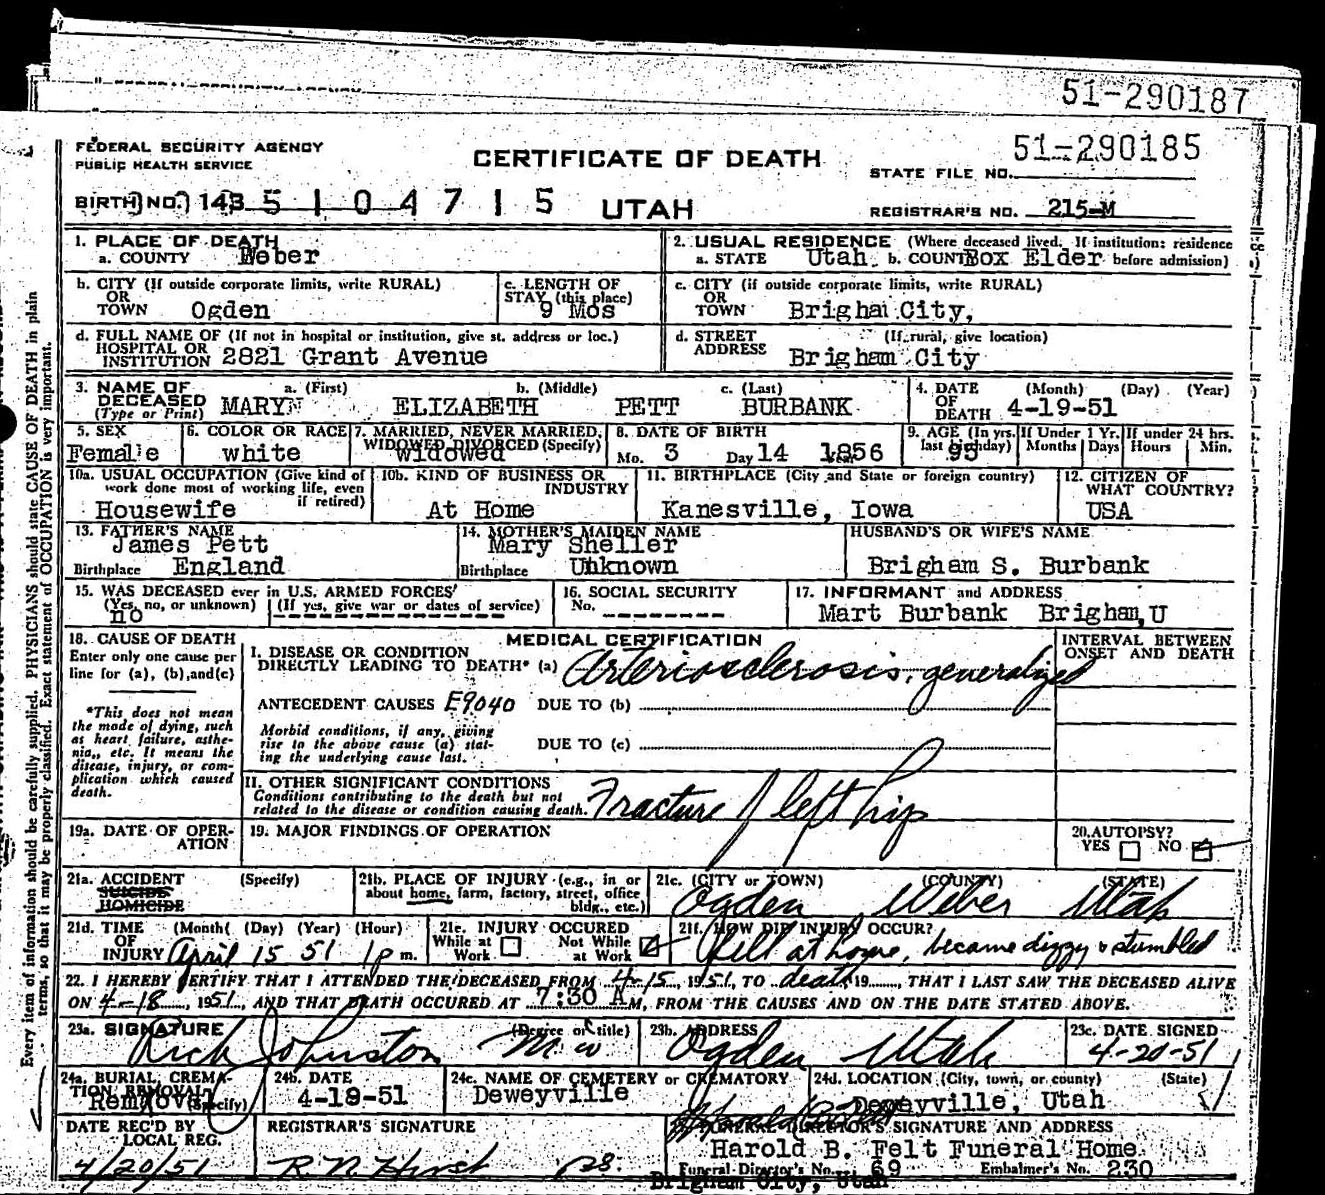 51-290187
FEDERAL SECURITY AGENCY
PUBLIC HEALTH SERVICE
CERTIFICATE OF DEATH
51-290185
STATE FILE NO.
BIRTH NO. 143 5 1 0 4 7 1 5 UTAH
REGISTRAR'S NO. 215-M
1. PLACE OF DEATH
a. COUNTY Weber
2. USUAL RESIDENCE (Where deceased lived. If institution: residence before admission)
a. STATE Utah b. COUNT Box Elder
b. CITY (If outside corporate limits, write RURAL)
OR
TOWN Ogden
c. LENGTH OF
STAY (this place)
9 Mos
c. CITY (if outside corporate limits, write RURAL)
OR
TOWN Brigham City,
d. FULL NAME OF (If not in hospital or institution, give st. address or loc.)
HOSPITAL OR
INSTITUTION 2821 Grant Avenue
d. STREET (If rural, give location)
ADDRESS Brigham City
3. NAME OF DECEASED (Type or Print)
a. (First) b. (Middle) c. (Last)
MARY ELIZABETH PETT BURBANK
4. DATE OF DEATH (Month) (Day) (Year)
4-19-51
5. SEX
Female
6. COLOR OR RACE
white
7. MARRIED, NEVER MARRIED,
WIDOWED DIVORCED (Specify)
widowed
8. DATE OF BIRTH
Mo. 3 Day 14 1856
9. AGE (In yrs. last birthday) 95
If Under 1 Yr. Months Days
If under 24 hrs. Hours Min.
10a. USUAL OCCUPATION (Give kind of
work done most of working life, even
if retired)
Housewife
10b. KIND OF BUSINESS OR
INDUSTRY
At Home
11. BIRTHPLACE (City and State or foreign country)
Kanesville, Iowa
12. CITIZEN OF
WHAT COUNTRY?
USA
13. FATHER'S NAME
James Pett
Birthplace England
14. MOTHER'S MAIDEN NAME
Mary Sheller
Birthplace Unknown
HUSBAND'S OR WIFE'S NAME
Brigham S. Burbank
15. WAS DECEASED ever in U.S. ARMED FORCES?
(Yes, no, or unknown) (If yes, give war or dates of service)
no
16. SOCIAL SECURITY
No.
17. INFORMANT and ADDRESS
Mart Burbank Brigham, U
18. CAUSE OF DEATH
Enter only one cause per
line for (a), (b), and (c)
*This does not mean
the mode of dying, such
as heart failure, asthe-
nia, etc. It means the
disease, injury, or com-
plication which caused
death.
MEDICAL CERTIFICATION
I. DISEASE OR CONDITION
DIRECTLY LEADING TO DEATH* (a) Arteriosclerosis, generalized
INTERVAL BETWEEN
ONSET AND DEATH
ANTECEDENT CAUSES E9040 DUE TO (b)
Morbid conditions, if any, giving
rise to the above cause (a) stat-
ing the underlying cause last.
DUE TO (c)
II. OTHER SIGNIFICANT CONDITIONS
Conditions contributing to the death but not
related to the disease or condition causing death. Fracture of left hip
19a. DATE OF OPER-
ATION
19. MAJOR FINDINGS OF OPERATION
20. AUTOPSY?
YES NO
21a. ACCIDENT (Specify)
SUICIDE
HOMICIDE
21b. PLACE OF INJURY (e.g., in or
about home, farm, factory, street, office
bldg., etc.)
21c. (CITY or TOWN) (COUNTY) (STATE)
Ogden Weber Utah
21d. TIME (Month) (Day) (Year) (Hour)
OF
INJURY April 15 51 1 p m.
21e. INJURY OCCURED
While at Work Not While at Work
21f. HOW DID INJURY OCCUR?
Fell at home, became dizzy & stumbled
22. I HEREBY CERTIFY THAT I ATTENDED THE DECEASED FROM 4-15, 1951, TO death, 19, THAT I LAST SAW THE DECEASED ALIVE
ON 4-18, 1951, AND THAT DEATH OCCURED AT 7:30 A M, FROM THE CAUSES AND ON THE DATE STATED ABOVE.
23a. SIGNATURE (Degree or title)
Rich Johnston M D
23b. ADDRESS
Ogden Utah
23c. DATE SIGNED
4-20-51
24a. BURIAL, CREMA-
TION, REMOVAL (Specify)
Removal
24b. DATE
4-19-51
24c. NAME OF CEMETERY or CREMATORY
Deweyville
24d. LOCATION (City, town, or county) (State)
Deweyville, Utah
DATE REC'D BY
LOCAL REG.
4/20/51
REGISTRAR'S SIGNATURE
FUNERAL DIRECTOR'S SIGNATURE AND ADDRESS
Harold B. Felt Funeral Home
Funeral Director's No. 69 Embalmer's No. 230
Brigham City, Utah
Every item of information should be carefully supplied. PHYSICIANS should state CAUSE OF DEATH in plain
terms, so that it may be properly classified. Exact statement of OCCUPATION is very important.